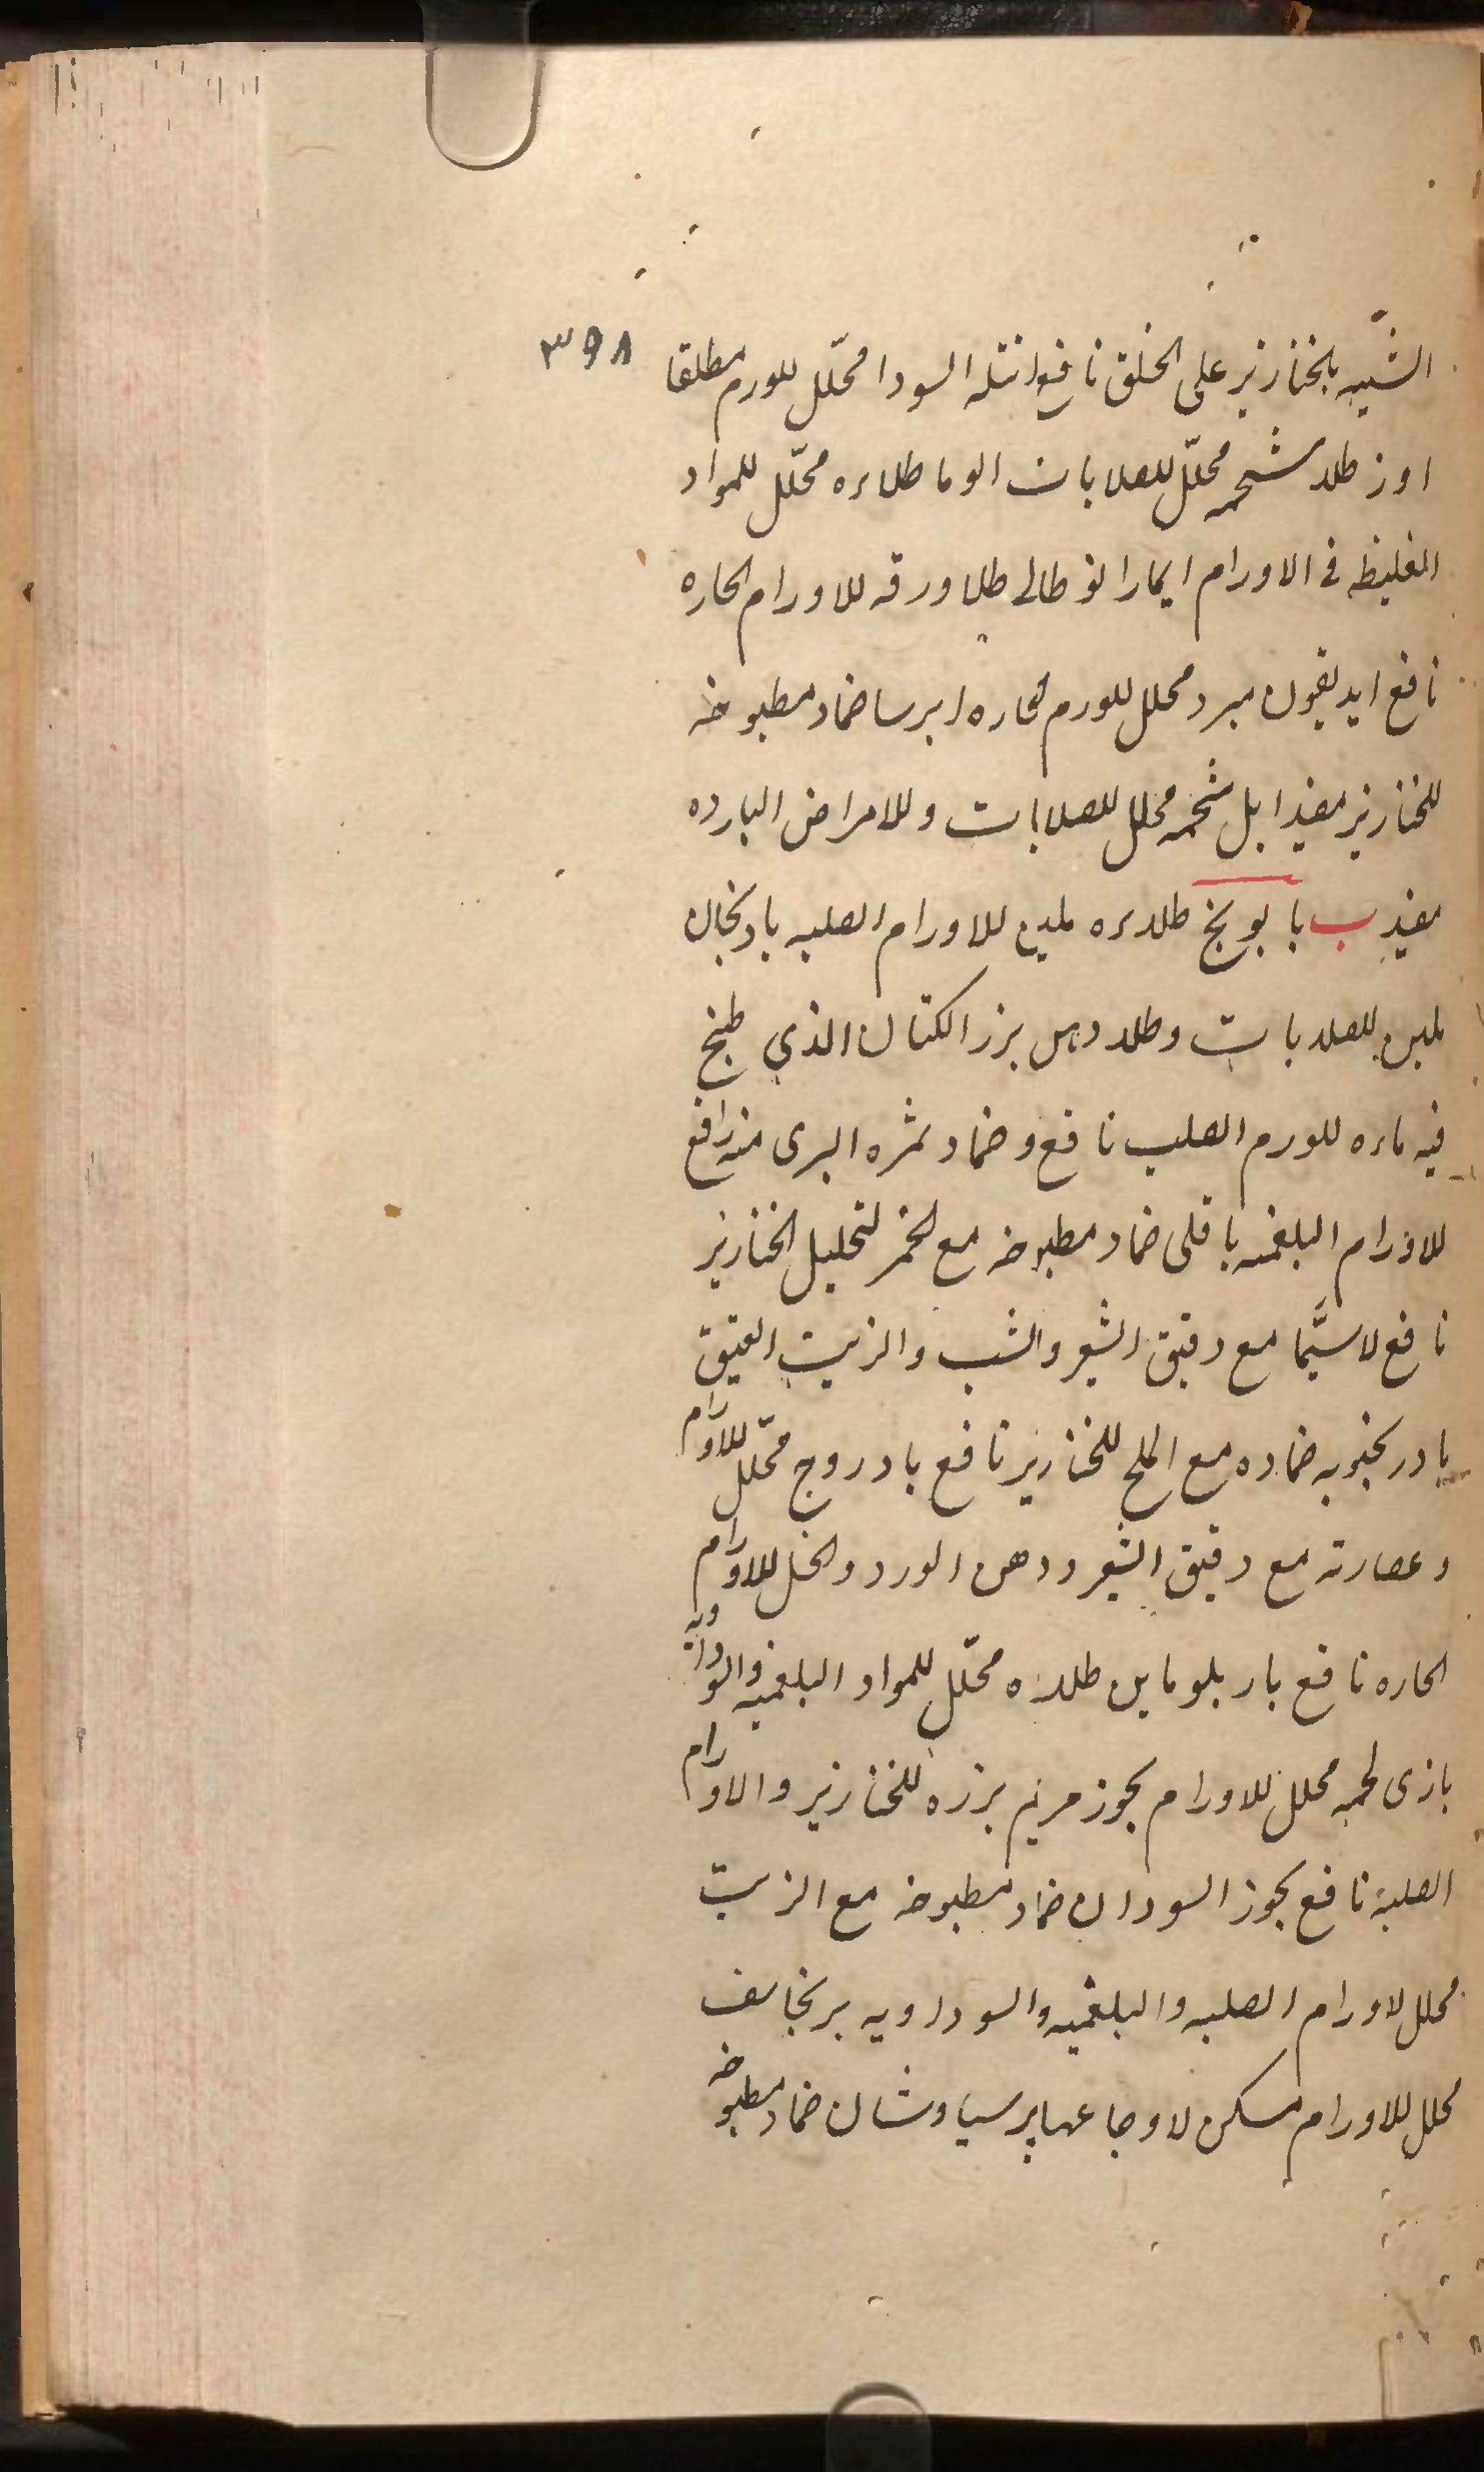 ٣٩٨
الشبیه بالخنازیر علی الحلق نافع انتله السودا محلّل للورم مطلقا
اوز طلاء شحمه محلّل للصلابات الوما طلاءه محلّل للمواد
الغلیظه فی الاورام ایمارا نوطالی طلا ورقه للاورام الحاره
نافع ایدیقون مبرد محلل للورم الحاره ایرسا ضماد مطبوخه
للخنازیر مفید ابل شحمه محلل للصلابات وللامراض البارده
مفید ب بابونج طلاءه ملین للاورام الصلبه بادنجان
ملین للصلابات وطلاء دهن بزر الکتان الذی طبخ
فیه ماءه للورم الصلب نافع وضماد ثمره البری منه رافع
للاورام البلغمیه باقلی ضماد مطبوخه مع الخمر لتحلیل الخنازیر
نافع لاسیّما مع دقیق الشعیر والشب والزیت العتیق
بادرنجبویه ضماده مع الملح للخنازیر نافع بادروج محلّل للاورام
وعصارته مع دقیق الشعیر ودهن الورد والخل للاورام
الحاره نافع باربلوماین طلاءه محلّل للمواد البلغمیه والسوداویه
بازی لحمه محلل للاورام بخور مریم بزره للخنازیر والاورام
الصلبة نافع بخور السودان ضماد مطبوخه مع الزیت
محلل لاورام الصلبه والبلغمیه والسوداویه برنجاسف
محلل للاورام مسکن لاوجاعها پرسیاوشان ضماد مطبوخه